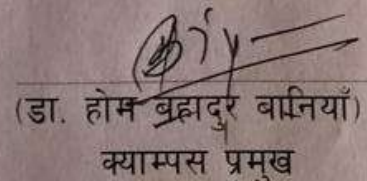 (डा. होम बहादुर बानियाँ)
क्याम्पस प्रमुख